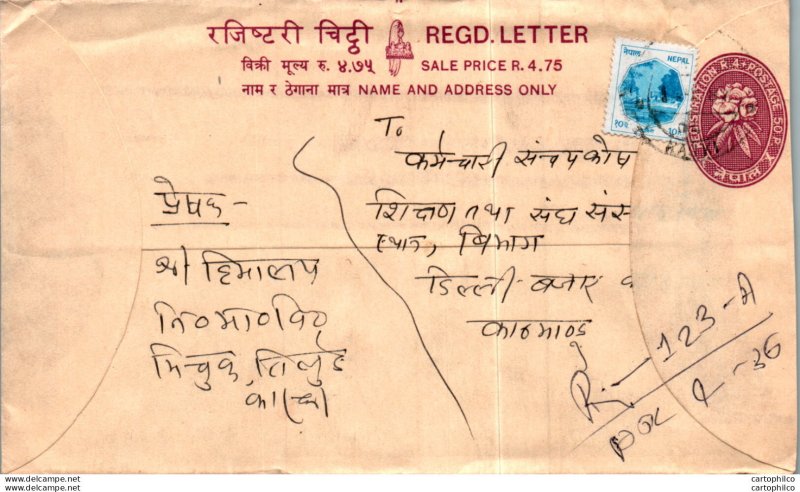 रजिष्टरी चिट्ठी REGD. LETTER
विक्री मूल्य रु. ४.७५ SALE PRICE R. 4.75
नाम र ठेगाना मात्र NAME AND ADDRESS ONLY
नेपाल NEPAL
REGISTRATION & POSTAGE 50 P.
नेपाल
To
कर्मचारी संचयकोष
शिक्षण तथा संघ संस
स्थान, विभाग
डिल्ली बजार
काठमाण्डू
प्रेषक -
श्री हिमालय
नि०मा०वि०
R - 123-A
www.delcampe.net
cartophilco
cartophilco